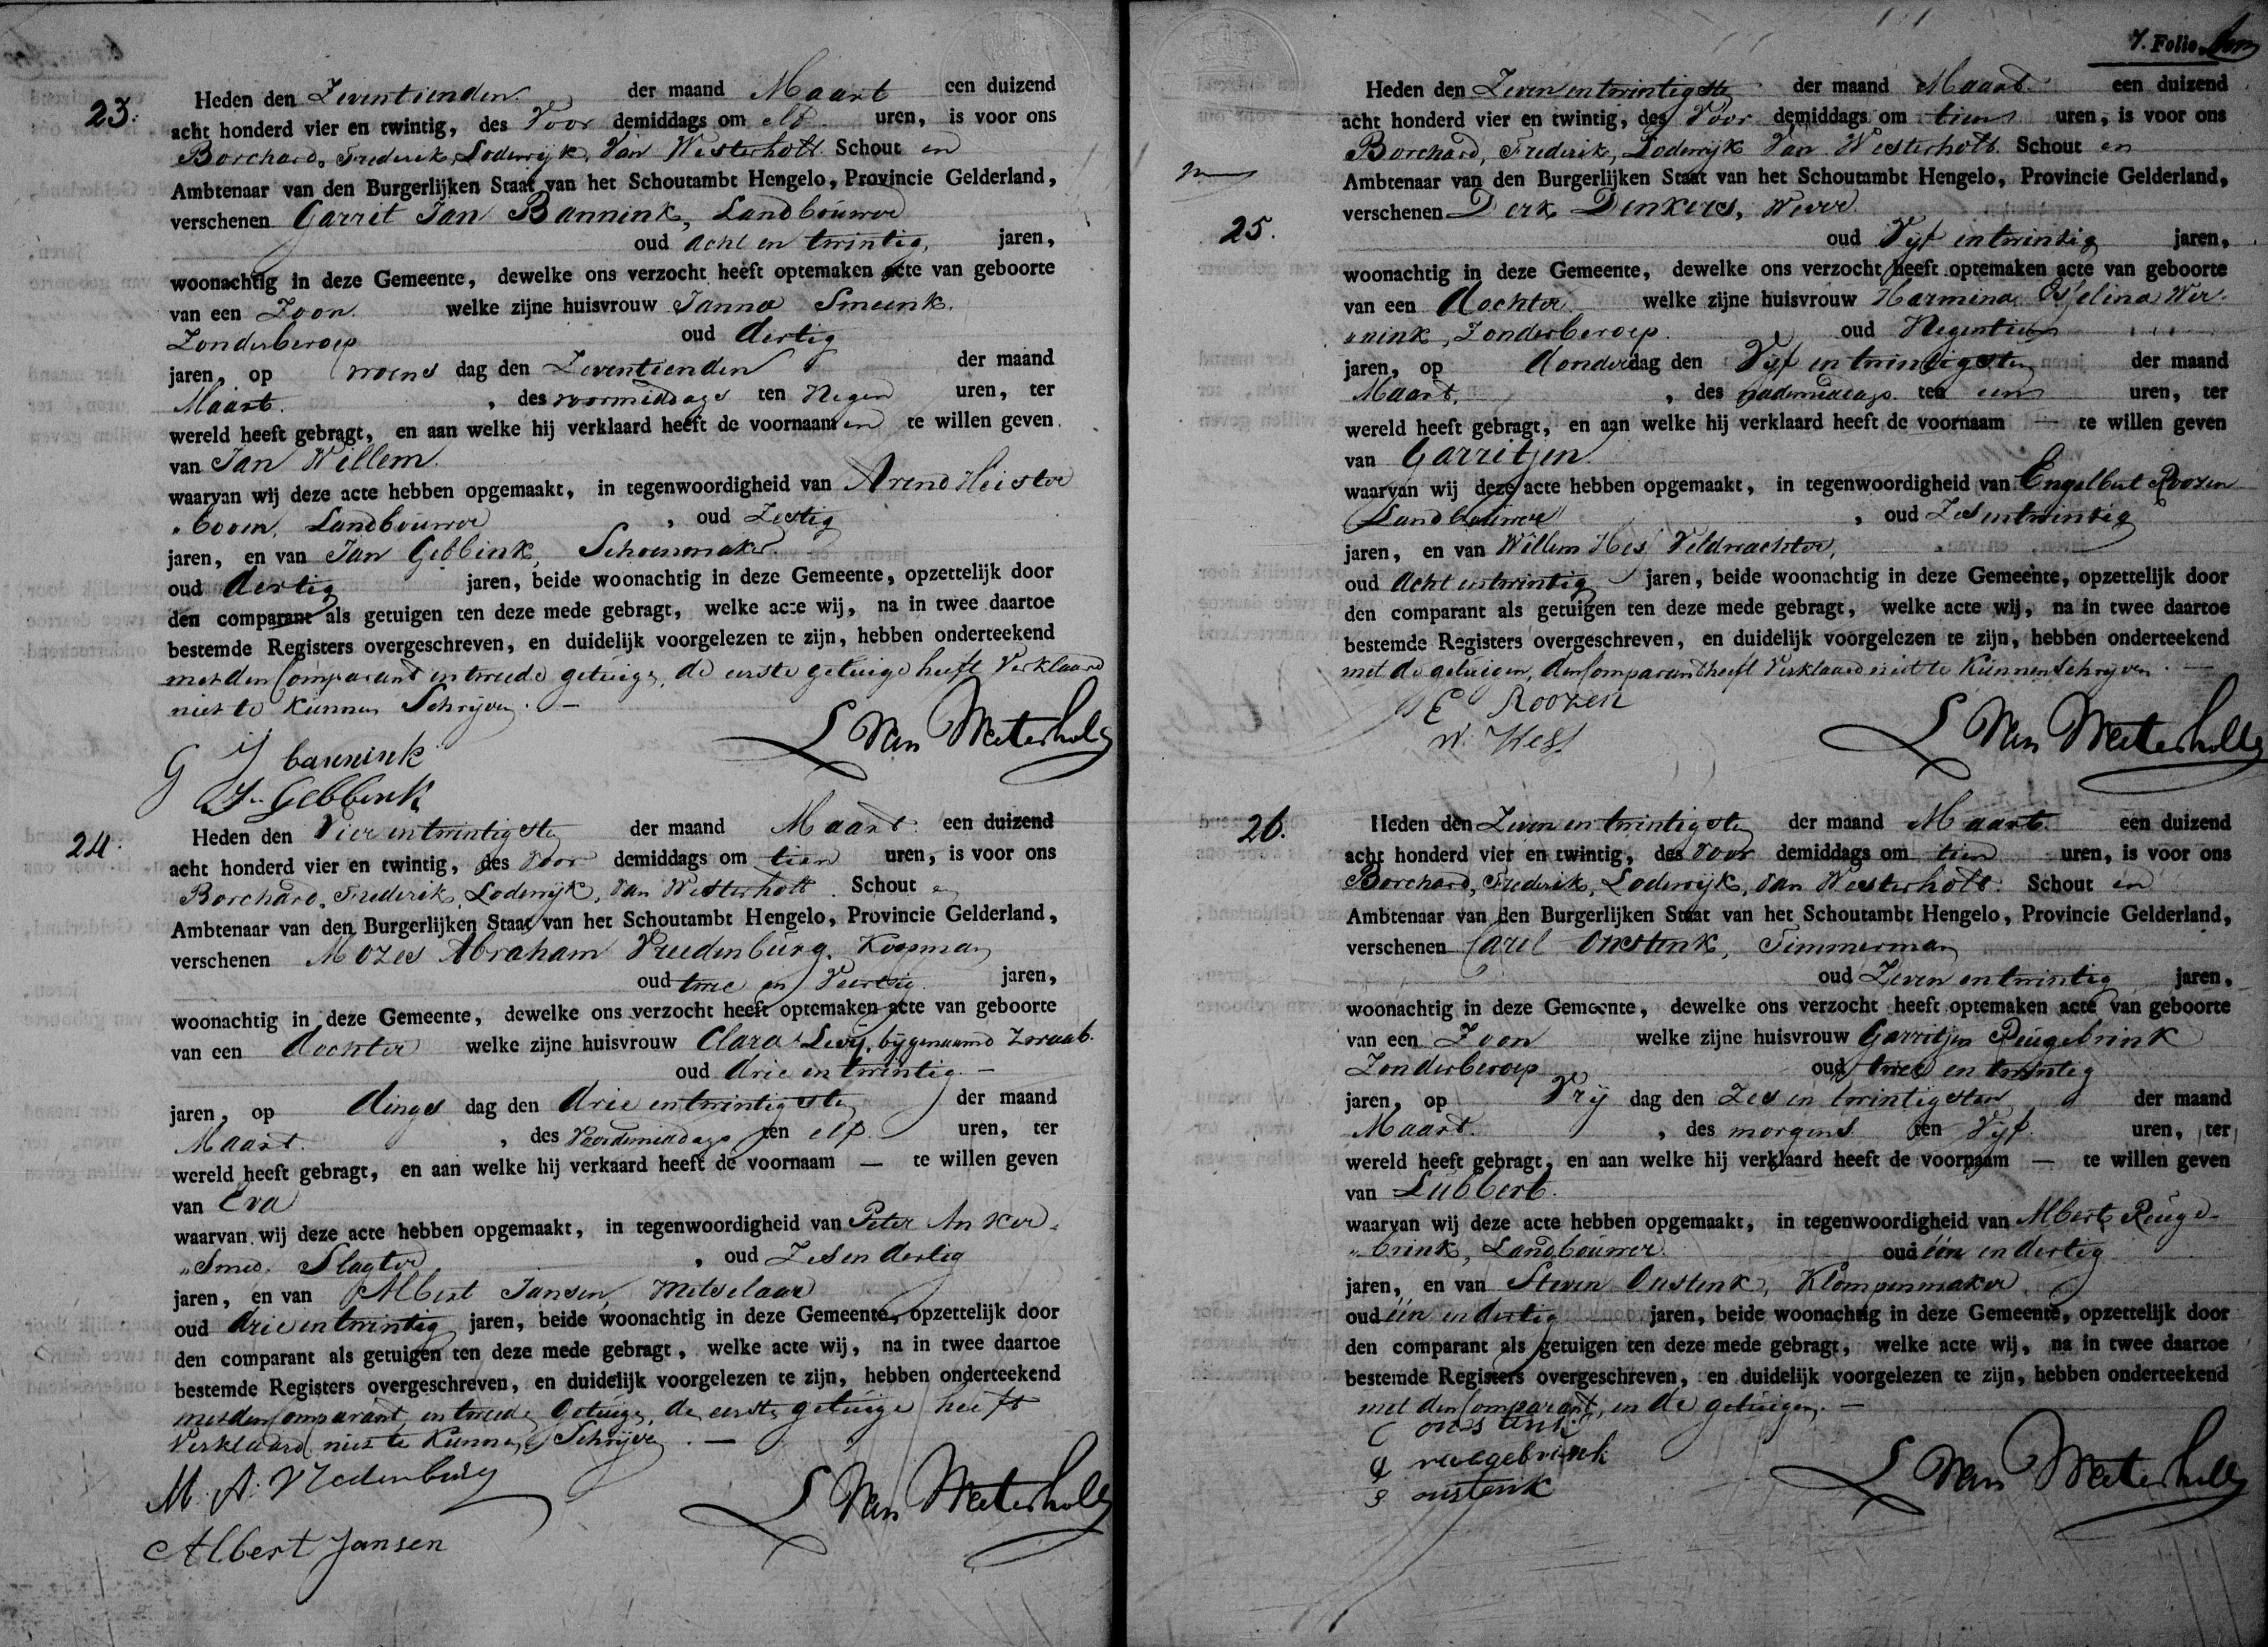 23.
Heden den Zeventienden der maand Maart een duizend
acht honderd vier en twintig, des Voor demiddags om elf uren, is voor ons
Borchard, Frederik, Lodewijk, Van Westerholt. Schout en
Ambtenaar van den Burgerlijken Staat van het Schoutambt Hengelo, Provincie Gelderland,
verschenen Garrit Jan Bannink, Landbouwer
oud acht en twintig, jaren,
woonachtig in deze Gemeente, dewelke ons verzocht heeft optemaken acte van geboorte
van een Zoon. welke zijne huisvrouw Janna Smeenk.
Zonderberoep oud dertig
jaren, op woens dag den Zeventienden der maand
Maart. , des voormiddags ten Negen uren, ter
wereld heeft gebragt, en aan welke hij verklaard heeft de voornaam en te willen geven.
van Jan Willem.
waarvan wij deze acte hebben opgemaakt, in tegenwoordigheid van Arend Heister
„boom, Landbouwer , oud Zestig
jaren, en van Jan Gebbink, Schoenmaker.
oud dertig jaren, beide woonachtig in deze Gemeente, opzettelijk door
den comparant als getuigen ten deze mede gebragt, welke acte wij, na in twee daartoe
bestemde Registers overgeschreven, en duidelijk voorgelezen te zijn, hebben onderteekend
met den Comparant en tweede getuige, de eerste getuige heeft Verklaard
niet te kunnen Schrijven. —
G J bannink
J. Gebbink
L Van Westerholt
24.
Heden den Vier en twintigsten der maand Maart. een duizend
acht honderd vier en twintig, des Voor demiddags om tien uren, is voor ons
Borchard, Frederik, Lodewijk, Van Westerholt. Schout en
Ambtenaar van den Burgerlijken Staat van het Schoutambt Hengelo, Provincie Gelderland,
verschenen Mozes Abraham Vreedenburg, Koopman
oud twee en Veertig. jaren,
woonachtig in deze Gemeente, dewelke ons verzocht heeft optemaken acte van geboorte
van een dochter welke zijne huisvrouw Clara Levij, bijgenaamd Zwaab.
oud drie en twintig. —
jaren, op dings dag den drie en twintigsten der maand
Maart. , des Voordemiddags ten elf uren, ter
wereld heeft gebragt, en aan welke hij verkaard heeft de voornaam — te willen geven
van Eva
waarvan wij deze acte hebben opgemaakt, in tegenwoordigheid van Peter Anker-
„Smid. Slagter , oud Zes en dertig
jaren, en van Albert Jansen, Metselaar
oud drie en twintig jaren, beide woonachtig in deze Gemeente, opzettelijk door
den comparant als getuigen ten deze mede gebragt, welke acte wij, na in twee daartoe
bestemde Registers overgeschreven, en duidelijk voorgelezen te zijn, hebben onderteekend
met den Comparant, en tweede Getuige, de eerste getuige heeft
Verklaard niet te Kunnen Schrijven. —
M. A. Vredenburg
Albert Jansen
L Van Westerholt
7. Folio
Heden den Zeven en twintigste der maand Maart. een duizend
acht honderd vier en twintig, des Voor demiddags om tien uren, is voor ons
Borchard, Frederik, Lodewijk Van Westerholt. Schout en
Ambtenaar van den Burgerlijken Staat van het Schoutambt Hengelo, Provincie Gelderland,
25.
verschenen Derk Denkers, Wever.
oud Vijf en twintig jaren,
woonachtig in deze Gemeente, dewelke ons verzocht heeft optemaken acte van geboorte
van een dochter welke zijne huisvrouw Harmina Gijselina Wer-
„nink, Zonderberoep. oud Negentien
jaren, op donderdag den Vijf en twintigsten der maand
Maart. , des nademiddags ten een uren, ter
wereld heeft gebragt, en aan welke hij verklaard heeft de voornaam — te willen geven
van Garritjen.
waarvan wij deze acte hebben opgemaakt, in tegenwoordigheid van Engelbert Roozen
Landbouwer , oud Zes en twintig
jaren, en van Willem Hes, Veldwachter,
oud acht en twintig jaren, beide woonachtig in deze Gemeente, opzettelijk door
den comparant als getuigen ten deze mede gebragt, welke acte wij, na in twee daartoe
bestemde Registers overgeschreven, en duidelijk voorgelezen te zijn, hebben onderteekend
met de getuigen, den Comparant heeft Verklaard niet te Kunnen Schrijven. —
E Roozen
W. Hes
L Van Westerholt
26.
Heden den Zeven en twintigsten der maand Maart. een duizend
acht honderd vier en twintig, des Voor demiddags om tien uren, is voor ons
Borchard, Frederik, Lodewijk, Van Westerholt. Schout en
Ambtenaar van den Burgerlijken Staat van het Schoutambt Hengelo, Provincie Gelderland,
verschenen Carel Onstenk, Timmerman
oud Zeven en twintig jaren,
woonachtig in deze Gemeente, dewelke ons verzocht heeft optemaken acte van geboorte
van een Zoon welke zijne huisvrouw Garritjen Reugebrink
Zonderberoep oud twee en twintig
jaren, op Vrij dag den Zes en twintigsten der maand
Maart. , des morgens ten Vijf uren, ter
wereld heeft gebragt, en aan welke hij verklaard heeft de voornaam — te willen geven
van Lubbert.
waarvan wij deze acte hebben opgemaakt, in tegenwoordigheid van Albert Reuge-
„brink, Landbouwer. oud één en dertig
jaren, en van Steven Onstenk, Klompenmaker
oud één en dertig jaren, beide woonachtig in deze Gemeente, opzettelijk door
den comparant als getuigen ten deze mede gebragt, welke acte wij, na in twee daartoe
bestemde Registers overgeschreven, en duidelijk voorgelezen te zijn, hebben onderteekend
met den Comparant, en de getuigen. —
C onstenk
a reugebrink
S onstenk
L Van Westerholt